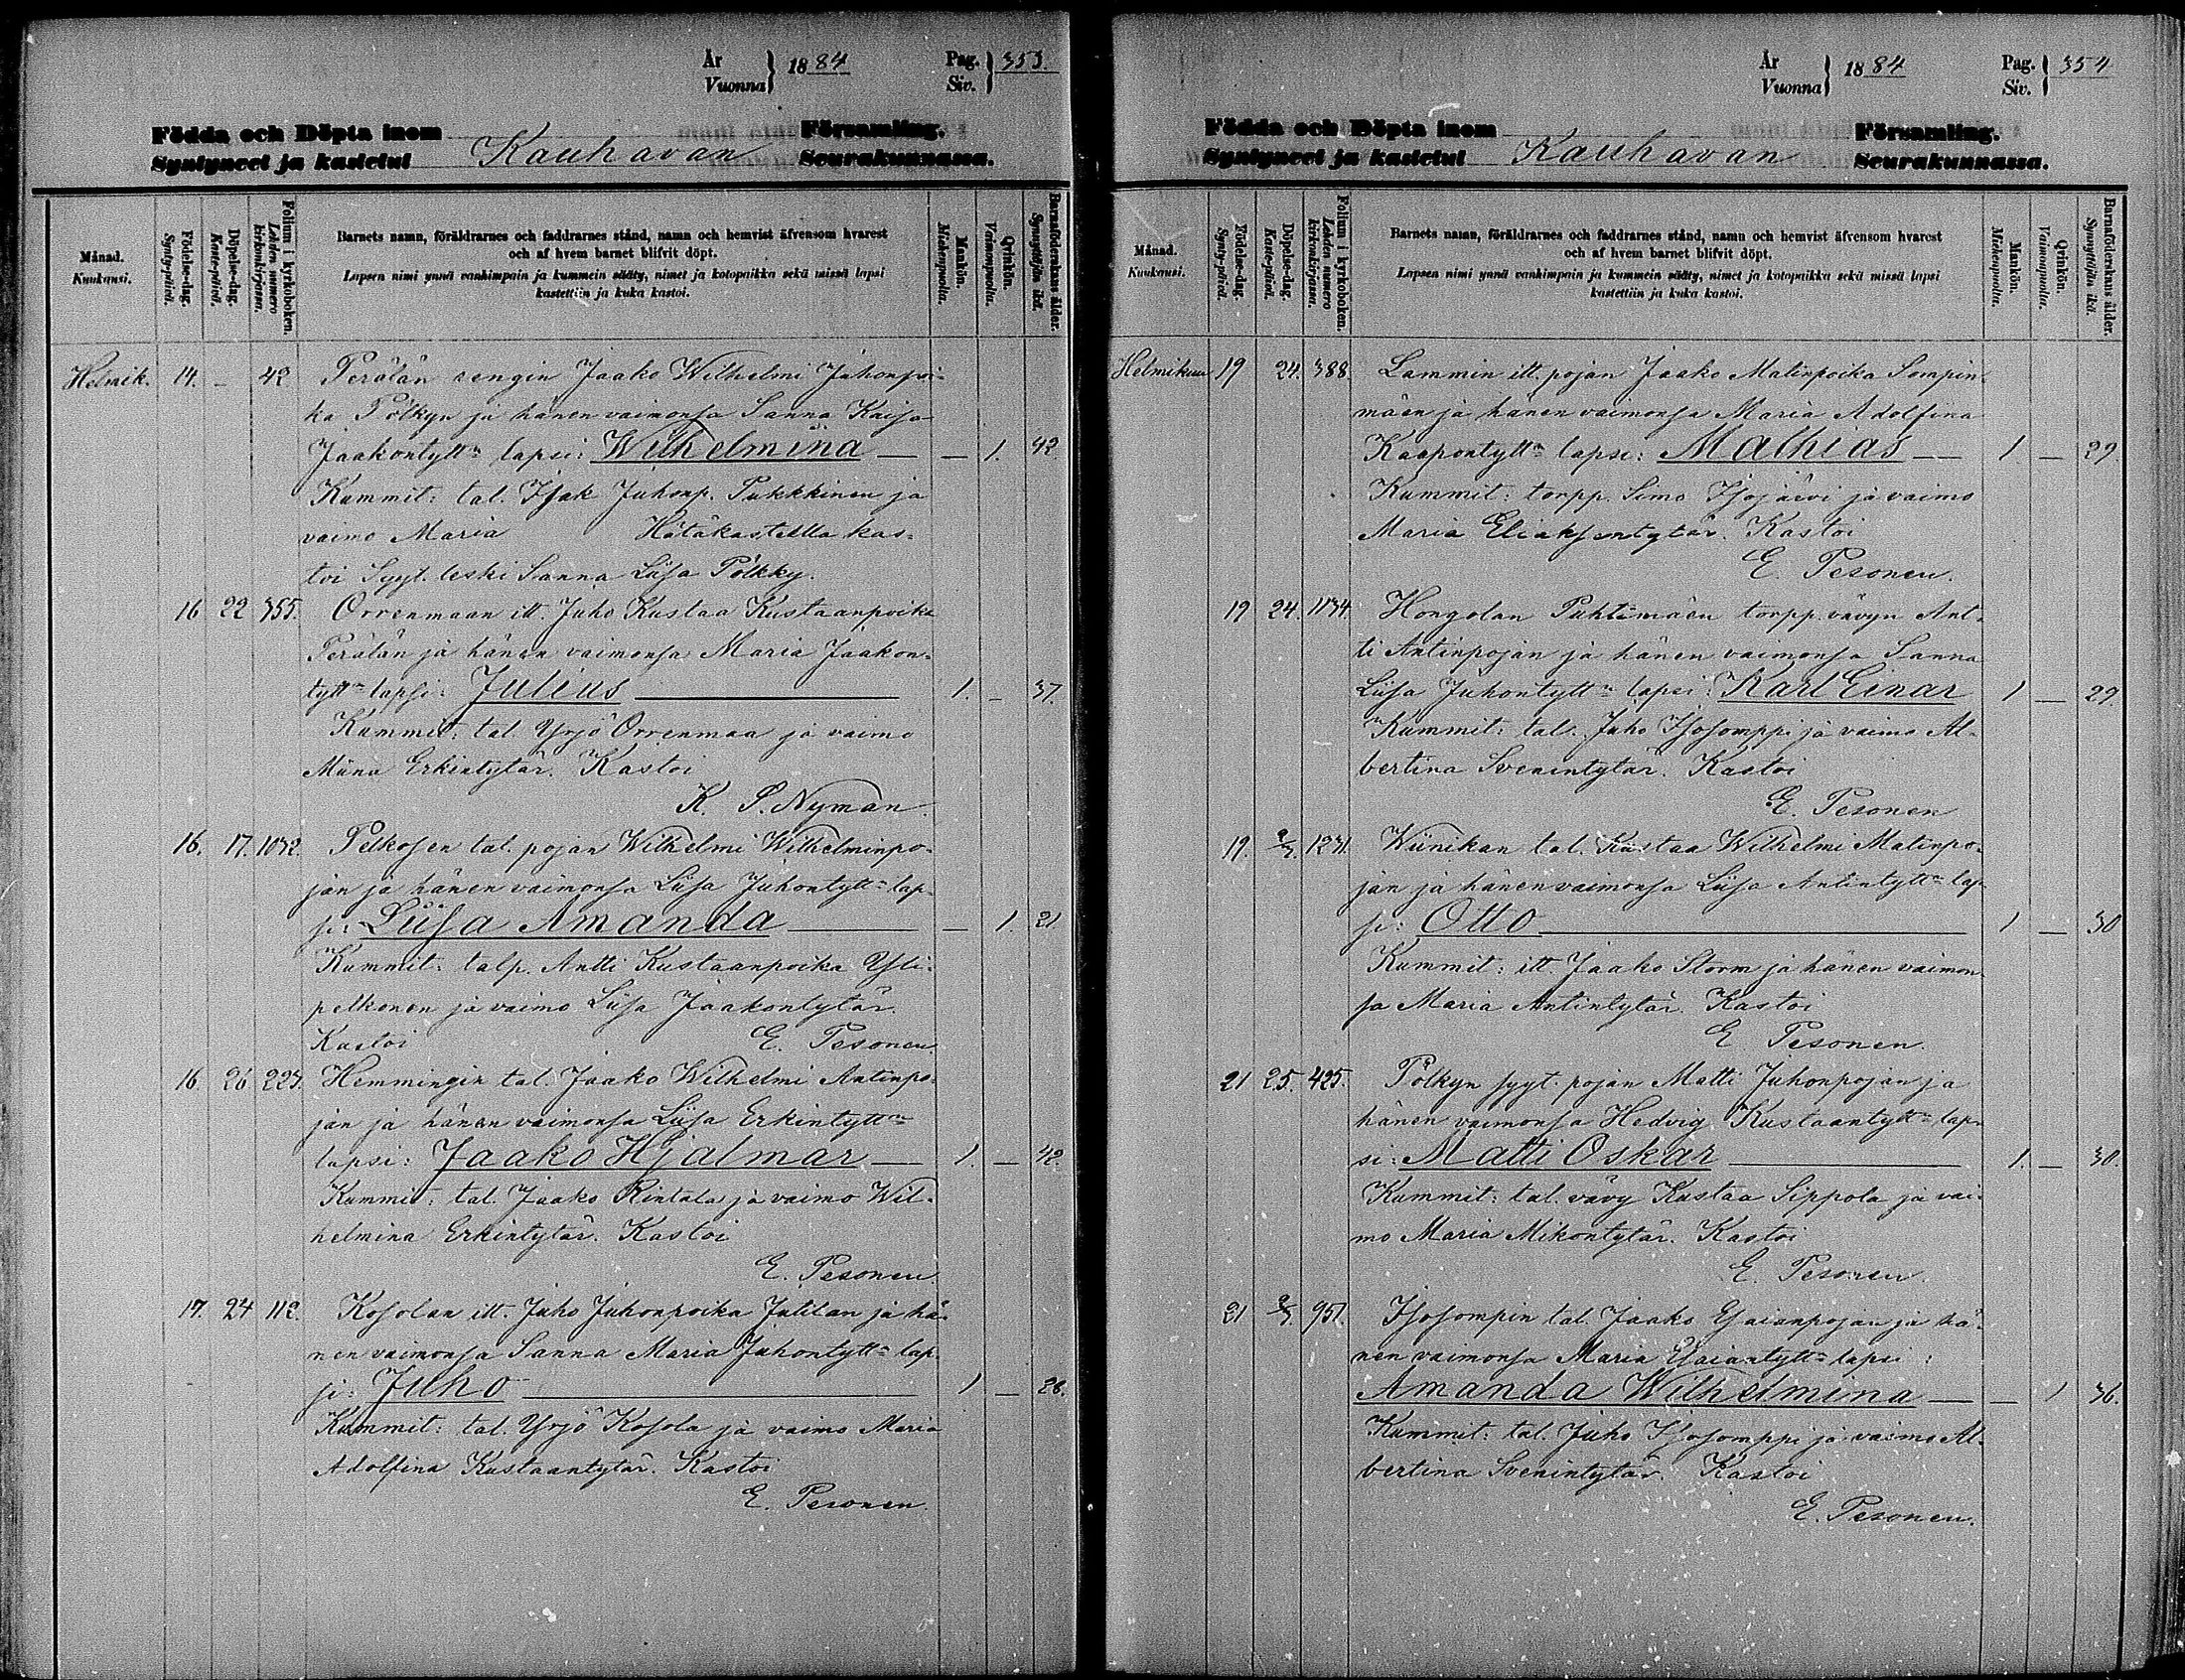 År
Vuonna } 1884
Pag.
Siv. } 353.
Födda och Döpta inom Församling.
Syntyneet ja kastetut Kauhavan Seurakunnassa.
Månad.
Kuukausi.
Födelse-dag.
Synty-päivä.
Döpelse-dag.
Kaste-päivä.
Folium i kyrkoboken.
Lehden numero kirkonkirjassa.
Barnets namn, föräldrarnes och faddrarnes stånd, namn och hemvist äfvensom hvarest
och af hvem barnet blifvit döpt.
Lapsen nimi ynnä vanhimpain ja kummein sääty, nimet ja kotopaikka sekä missä lapsi
kastettiin ja kuka kastoi.
Mankön.
Miehenpuolia.
Qvinkön.
Vaimonpuolia.
Barnaföderskans ålder.
Synnyttäjän ikä.
Helmik. 14. – 42 Perälän rengin Jaako Wilhelmi Juhonpoi-
ka Pölkyn ja hänen vaimonsa Sanna Kaisa
Jaakontyttn lapsi: Wilhelmina — — 1. 42
Kummit: tal. Isak Juhonp. Pukkkinen ja
vaimo Maria Hätäkasteella kas-
toi Syyt. leski Sanna Liisa Pölkky.
16 22 355. Orrenmaan itt. Juho Kustaa Kustaanpoika
Perälän ja hänen vaimonsa Maria Jaakon-
tyttn lapsi: Julius — 1. – 37.
Kummit: tal. Yrjö Orrenmaa ja vaimo
Miina Erkintytär. Kastoi
K. P. Nyman.
16. 17. 1032. Pelkosen tal. pojan Wilhelmi Wilhelminpo-
jan ja hänen vaimonsa Liisa Juhontyttn lap-
si: Liisa Amanda — — 1. 21
Kummit: talp. Antti Kustaanpoika Yli-
pelkonen ja vaimo Liisa Jaakontytär.
Kastoi E. Pesonen.
16. 26 227. Hemmingin tal. Jaako Wilhelmi Antinpo-
jan ja hänen vaimonsa Liisa Erkintyttn
lapsi: Jaako Hjalmar — 1. — 42.
Kummit: tal. Jaako Rintala ja vaimo Wil-
helmina Erkintytär. Kastoi
E. Pesonen
17. 24 112. Kosolan itt. Juho Juhonpoika Jutilan ja hä-
nen vaimonsa Sanna Maria Juhontyttn lap-
si: Juho — 1 — 28.
Kummit: tal. Yrjö Kosola ja vaimo Maria
Adolfina Kustaantytär. Kastoi
E. Pesonen.
År
Vuonna } 1884
Pag.
Siv. } 354
Födda och Döpta inom Församling.
Syntyneet ja kastetut Kauhavan Seurakunnassa.
Månad.
Kuukausi.
Födelse-dag.
Synty-päivä.
Döpelse-dag.
Kaste-päivä.
Folium i kyrkoboken.
Lehden numero kirkonkirjassa.
Barnets namn, föräldrarnes och faddrarnes stånd, namn och hemvist äfvensom hvarest
och af hvem barnet blifvit döpt.
Lapsen nimi ynnä vanhimpain ja kummein sääty, nimet ja kotopaikka sekä missä lapsi
kastettiin ja kuka kastoi.
Mankön.
Miehenpuolia.
Qvinkön.
Vaimonpuolia.
Barnaföderskans ålder.
Synnyttäjän ikä.
Helmikuu 19 24. 388. Lammin itt. pojan Jaako Matinpoika Sompin-
mäen ja hänen vaimonsa Maria Adolfina
Kaapontyttn lapsi: Mathias — 1 — 29
Kummit: torpp. Simo Isojärvi ja vaimo
Maria Eliaksentytär. Kastoi
E. Pesonen.
19 24. 1134. Hongolan Puhtimäen torpp. vävyn Ant-
ti Antinpojan ja hänen vaimonsa Sanna
Liisa Juhontyttn lapsi: Karl Einar 1 — 29.
Kummit: tal. Juho Isosomppi ja vaimo Al-
bertina Svenintytär. Kastoi
E. Pesonen
19. 2/3. 1231. Wiinikan tal. Kustaa Wilhelmi Matinpo-
jan ja hänen vaimonsa Liisa Antintyttn lap-
si: Otto — 1 — 30
Kummit: itt. Jaako Storm ja hänen vaimon-
sa Maria Antintytär. Kastoi
E Pesonen.
21 25. 425. Pölkyn syyt. pojan Matti Juhonpojan ja
hänen vaimonsa Hedvig Kustaantyttn lap-
si: Matti Oskar — 1. — 30.
Kummit: tal. vävy Kustaa Sippola ja vai-
mo Maria Mikontytär. Kastoi
E. Pesonen.
21 2/3. 951. Isosompin tal. Jaako Esaianpojan ja hä-
nen vaimonsa Maria Esaiantyttn lapsi:
Amanda Wilhelmina — — 1 36.
Kummit: tal. Juho Isosomppi ja vaimo Al-
bertina Svenintytär. Kastoi
E. Pesonen.